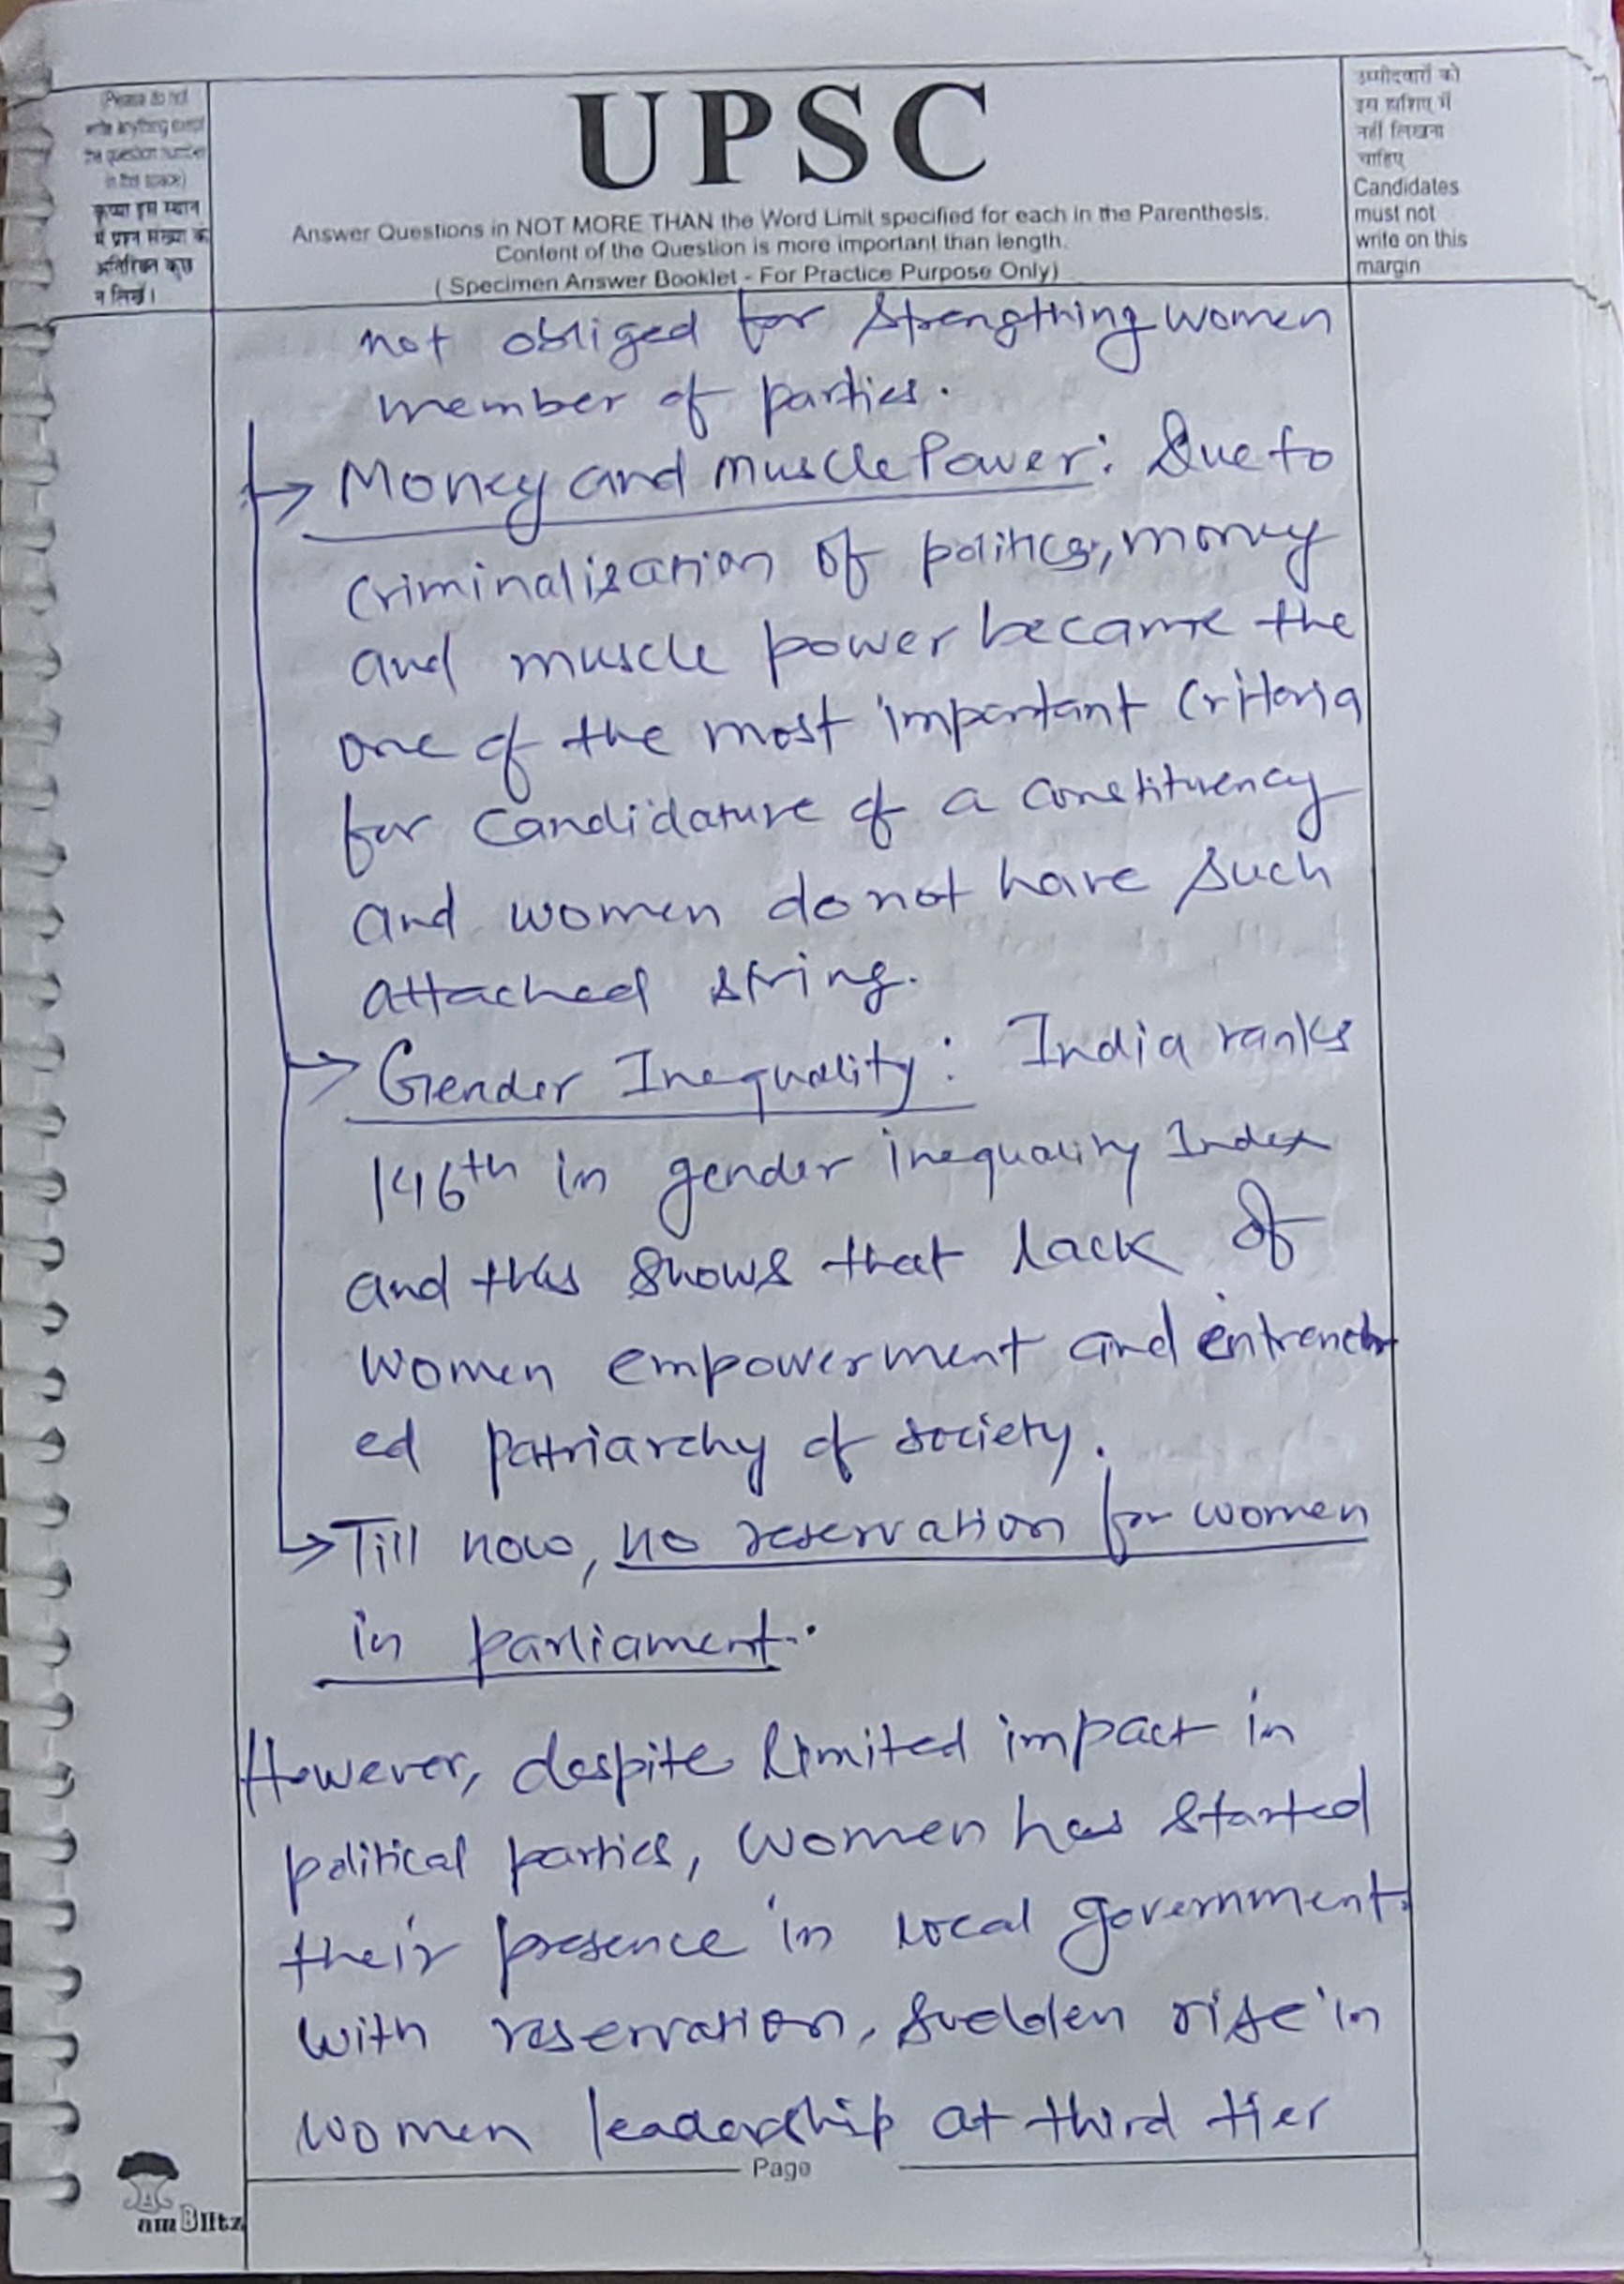 (Please do not
write anything except
the question number
in this space)
कृपया इस स्थान
में प्रश्न संख्या के
अतिरिक्त कुछ
न लिखें।
UPSC
Answer Questions in NOT MORE THAN the Word Limit specified for each in the Parenthesis.
Content of the Question is more important than length.
( Specimen Answer Booklet - For Practice Purpose Only)
उम्मीदवारों को
इस हाशिए में
नहीं लिखना
चाहिए
Candidates
must not
write on this
margin
not obliged for strengthing women
member of parties.
→ Money and muscle Power: Due to
criminalisation of politics, money
and muscle power became the
one of the most important criteria
for candidature of a constituency
and women do not have such
attached string.
→ Gender Inequality: India ranks
146th in gender inequality Index
and this shows that lack of
women empowerment and entrench
ed patriarchy of society.
→ Till now, no reservation for women
in parliament.
However, despite limited impact in
political parties, women has started
their presence in local government.
with reservation, sudden rise in
women leadership at third tier
Page
am Blitz